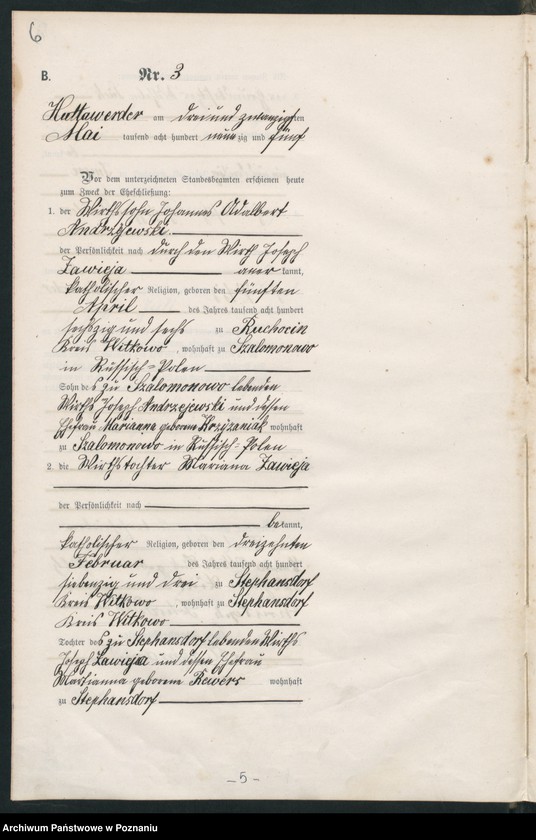 6
B. Nr. 3
Huttawerder am drei und zwanzigsten
Mai tausend acht hundert neunzig und fünf
Vor dem unterzeichneten Standesbeamten erschienen heute
zum Zweck der Eheschließung:
1. der Wirthssohn Johannes Adalbert
Andrzejewski
der Persönlichkeit nach durch den Wirth Joseph
Zawieja anerkannt,
katholischer Religion, geboren den fünften
April des Jahres tausend acht hundert
sechszig und sechs zu Ruchocin
Kreis Witkowo, wohnhaft zu Szalomonowo
in Russisch-Polen
Sohn des zu Szalomonowo lebenden
Wirths Joseph Andrzejewski und dessen
Ehefrau Marianne geborene Krzyzaniak wohnhaft
zu Szalomonowo in Russisch-Polen
2. die Wirthstochter Mariana Zawieja
der Persönlichkeit nach
bekannt,
katholischer Religion, geboren den dreizehnten
Februar des Jahres tausend acht hundert
siebenzig und drei zu Stephansdorf
Kreis Witkowo, wohnhaft zu Stephansdorf
Kreis Witkowo
Tochter des zu Stephansdorf lebenden Wirths
Joseph Zawieja und dessen Ehefrau
Marianna geborene Rewers wohnhaft
zu Stephansdorf
– 5 –
Archiwum Państwowe w Poznaniu